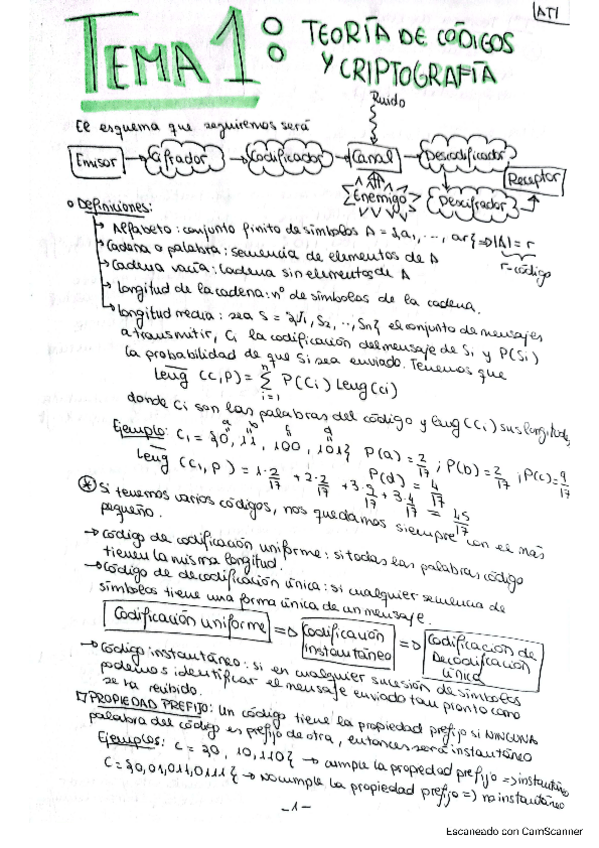 AT1
TEMA 1: TEORÍA DE CÓDIGOS
Y CRIPTOGRAFÍA
El esquema que seguiremos será
Ruido
Emisor → Cifrador → Codificador → Canal → Descodificador
Enemigo
Descifrador
Receptor
Definiciones:
→ Alfabeto: conjunto finito de símbolos A = {a1, ..., ar} => |A| = r
r-código
→ Cadena o palabra: secuencia de elementos de A
→ Cadena vacía: Cadena sin elementos de A
→ Longitud de la cadena: nº de símbolos de la cadena.
→ Longitud media: sea S = {S1, S2, .., Sn} el conjunto de mensajes
a transmitir, Ci la codificación del mensaje de Si y P(Si)
la probabilidad de que Si sea enviado. Tenemos que
Leng (C,P) = Σ P(Ci) Leng(Ci)
n
i=1
donde Ci son las palabras del código y leng(Ci) sus longitude,
a b c d
Ejemplo: C1 = {0, 11, 100, 101} P(a) = 2/17; P(b) = 2/17; P(c) = 9/17
P(d) = 4/17
Leng (C1, P) = 1·2/17 + 2·2/17 + 3·9/17 + 3·4/17 = 45/17
* Si tenemos varios códigos, nos quedamos siempre con el más
pequeño.
→ Código de codificación uniforme: si todas las palabras código
tienen la misma longitud.
→ Código de decodificación única: si cualquier secuencia de
símbolos tiene una forma única de un mensaje.
Codificación uniforme => Codificación instantáneo => Codificación de Decodificación única
→ Código instantáneo: si en cualquier sucesión de símbolos
podemos identificar el mensaje enviado tan pronto como
se ha recibido.
PROPIEDAD PREFIJO: Un código tiene la propiedad prefijo si NINGUNA
palabra del código es prefijo de otra, entonces será instantáneo
Ejemplos: C = {0, 10, 110} → cumple la propiedad prefijo => instantáneo
C = {0, 01, 011, 0111} → no cumple la propiedad prefijo => no instantáneo
-1-
Escaneado con CamScanner